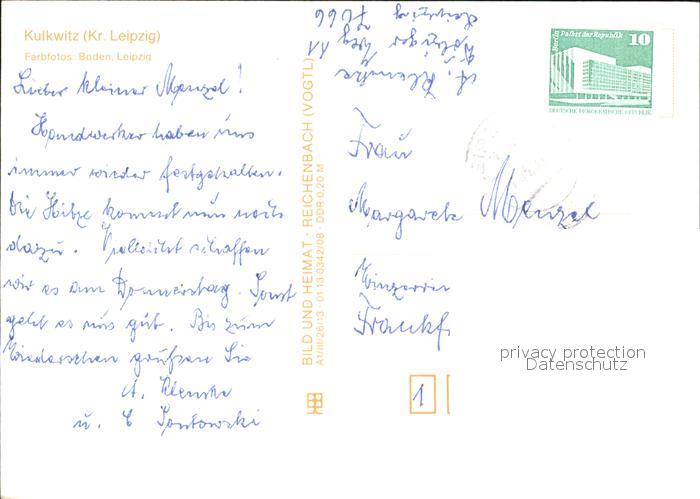 Kulkwitz (Kr. Leipzig)
Farbfotos: Boden, Leipzig
Lieber kleiner Menzel!
Handwerker haben uns
immer wieder festgehalten.
Die Hitze kommt nun noch
dazu. Vielleicht schaffen
wir es am Donnerstag. Sonst
geht es uns gut. Bis zum
Wiedersehen grüßen Sie
A. Klenske
u. E Sontowski
BILD UND HEIMAT · REICHENBACH (VOGTL)
A1/III/26/13 · 01 13 0342/08 · DDR 0,20 M
A. Klenske
Weg 11
7066
Leipzig
Berlin Palast der Republik 10
DEUTSCHE DEMOKRATISCHE REPUBLIK
Frau
Margarete Menzel
Frankf
privacy protection
Datenschutz
1